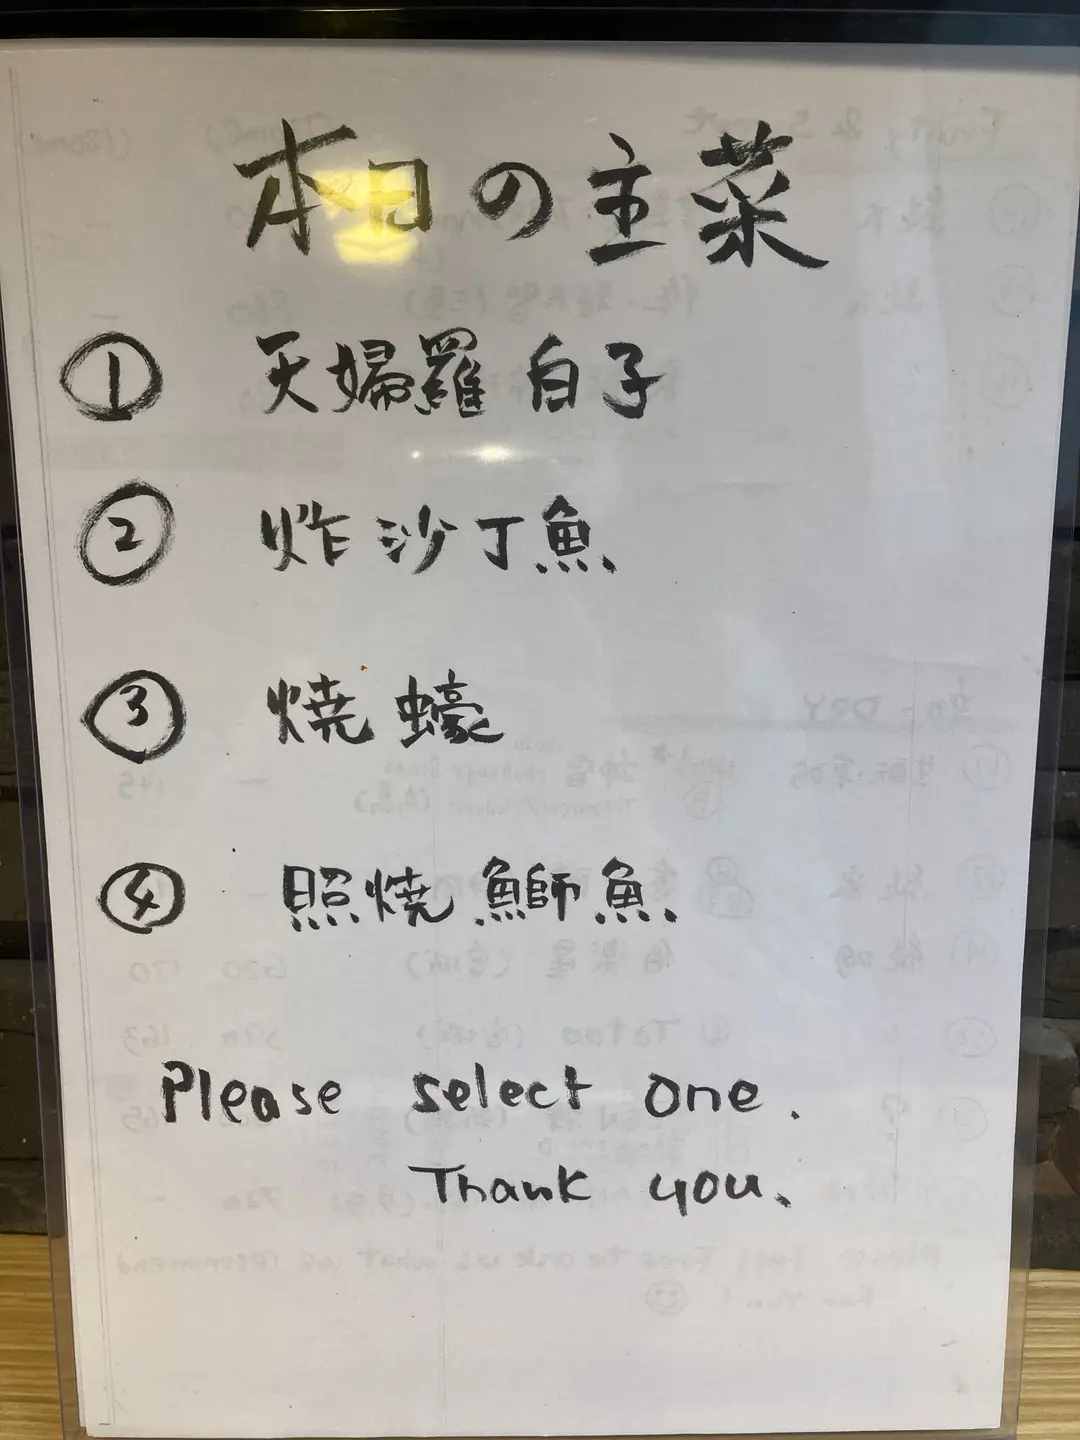 本日の主菜
① 天婦羅 白子
② 炸沙丁魚
③ 焼蠔
④ 照焼鰤魚
Please select one.
Thank you.